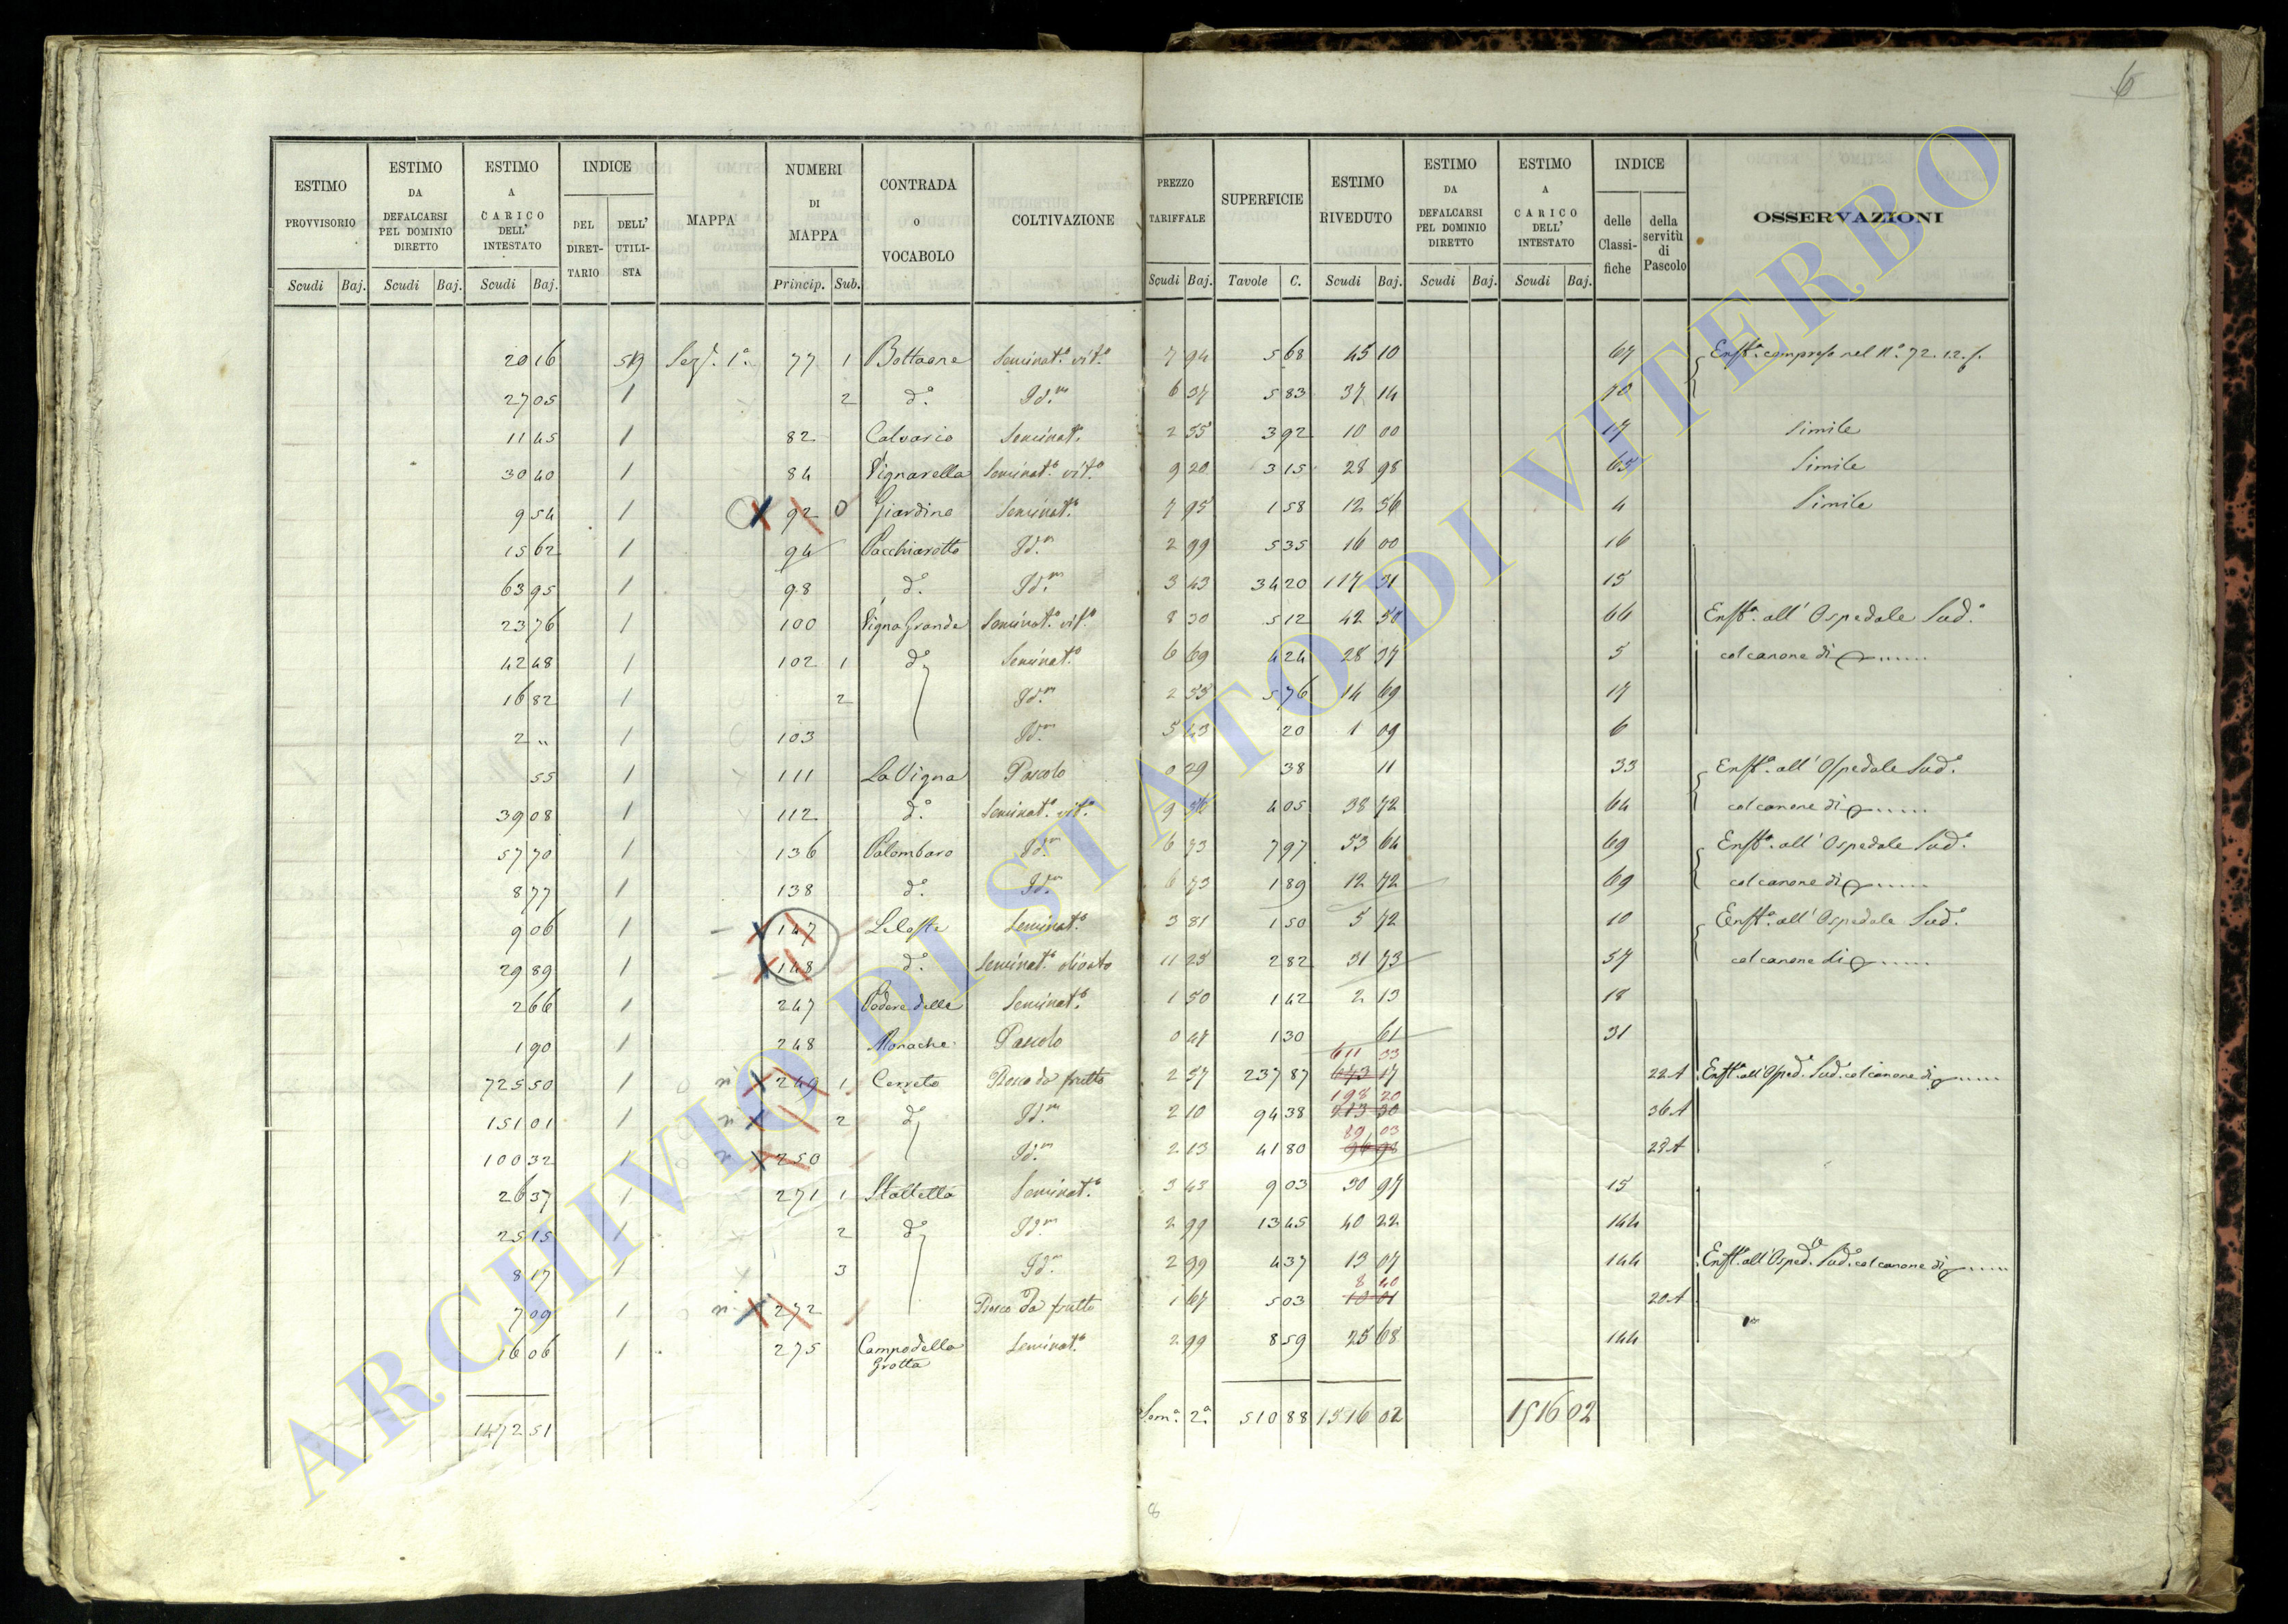 6
ESTIMO PROVVISORIO | ESTIMO DA DEFALCARSI PEL DOMINIO DIRETTO | ESTIMO A CARICO DELL' INTESTATO | INDICE | MAPPA | NUMERI DI MAPPA | CONTRADA o VOCABOLO | COLTIVAZIONE | PREZZO TARIFFALE | SUPERFICIE | ESTIMO RIVEDUTO | ESTIMO DA DEFALCARSI PEL DOMINIO DIRETTO | ESTIMO A CARICO DELL' INTESTATO | INDICE | OSSERVAZIONI
DEL DIRETTARIO | DELL' UTILISTA | delle Classifiche | della servitù di Pascolo
Scudi | Baj. | Scudi | Baj. | Scudi | Baj. | Princip. | Sub. | Scudi | Baj. | Tavole | C. | Scudi | Baj. | Scudi | Baj. | Scudi | Baj.
20 16 | Sez. 1a | 77 | 1 | Seminato. vito. | 7 94 | 5 68 | 45 10 | 67 | Enfta. compreso nel No. 72.12.
27 05 | 1 | 2 | do. | Idm. | 6 37 | 5 83 | 37 14 | 70
11 45 | 1 | 82 | Calvario | Seminato. | 2 55 | 3 92 | 10 00 | 17 | Simile
30 40 | 1 | 84 | Vignarella | Seminato. vito. | 9 20 | 3 15 | 28 98 | 65 | Simile
9 54 | 1 | 92 | 0 | Giardino | Seminato. | 7 95 | 1 58 | 12 56 | 4 | Simile
15 62 | 1 | 94 | Pacchiarotto | Idm. | 2 99 | 5 35 | 16 00 | 16
63 95 | 1 | 98 | do. | Idm. | 3 43 | 34 20 | 117 31 | 15
23 76 | 1 | 100 | Vigna Grande | Seminato. vito. | 8 30 | 5 12 | 42 50 | 66 | Enfta. all' Ospedale Sudo.
42 48 | 1 | 102 | 1 | do. | Seminato. | 6 69 | 4 24 | 28 37 | 5 | col canone di
16 82 | 1 | 2 | Idm. | 2 55 | 5 76 | 14 69 | 17
2 " | 1 | 103 | Idm. | 5 43 | 20 | 1 09 | 6
55 | 1 | 111 | La Vigna | Pascolo | 0 29 | 38 | 11 | 33 | Enfta. all' Ospedale Sudo.
39 08 | 1 | 112 | do. | Seminato. vito. | 9 56 | 4 05 | 38 72 | 64 | col canone di
57 70 | 1 | 136 | Palombaro | Idm. | 6 73 | 7 97 | 53 64 | 69 | Enfta. all' Ospedale Sudo.
8 77 | 1 | 138 | do. | Idm. | 6 73 | 1 89 | 12 72 | 69 | col canone di
9 06 | 1 | 147 | Seminato. | 3 81 | 1 50 | 5 72 | 10 | Enfta. all' Ospedale Sudo.
29 89 | 1 | 148 | do. | Seminato. olivato | 11 25 | 2 82 | 31 73 | 57 | col canone di
2 66 | 1 | 247 | Podere delle | Seminato. | 1 50 | 1 42 | 2 13 | 18
1 90 | 1 | 248 | Monache | Pascolo | 0 47 | 1 30 | 61 | 31
611 33
725 50 | 1 | 249 | 1 | Cerreto | Bosco da frutto | 2 57 | 237 87 | 673 17 | 22 A | Enfta. all' Osped. Sudo. col canone di
198 20
151 01 | 1 | 2 | do. | Idm. | 2 10 | 94 38 | 213 30 | 36 A
89 03
100 32 | 1 | 250 | Idm. | 2 13 | 41 80 | 28 A
26 37 | 1 | 271 | 1 | Stalletta | Seminato. | 3 43 | 9 03 | 30 97 | 15
25 15 | 1 | 2 | do. | Idm. | 2 99 | 13 45 | 40 22 | 144
8 17 | 1 | 3 | Idm. | 2 99 | 4 37 | 13 07 | 144 | Enfta. all' Osped. Sudo. col canone di
8 40
7 09 | 1 | 272 | Bosco da frutto | 1 67 | 5 03 | 10 01 | 20 A
16 06 | 1 | 275 | Campo della Grotta | Seminato. | 2 99 | 8 59 | 25 68 | 144
1472 51 | Soma. 2a. | 510 88 | 1516 02 | 1516 02
8
ARCHIVIO DI STATO DI VITERBO